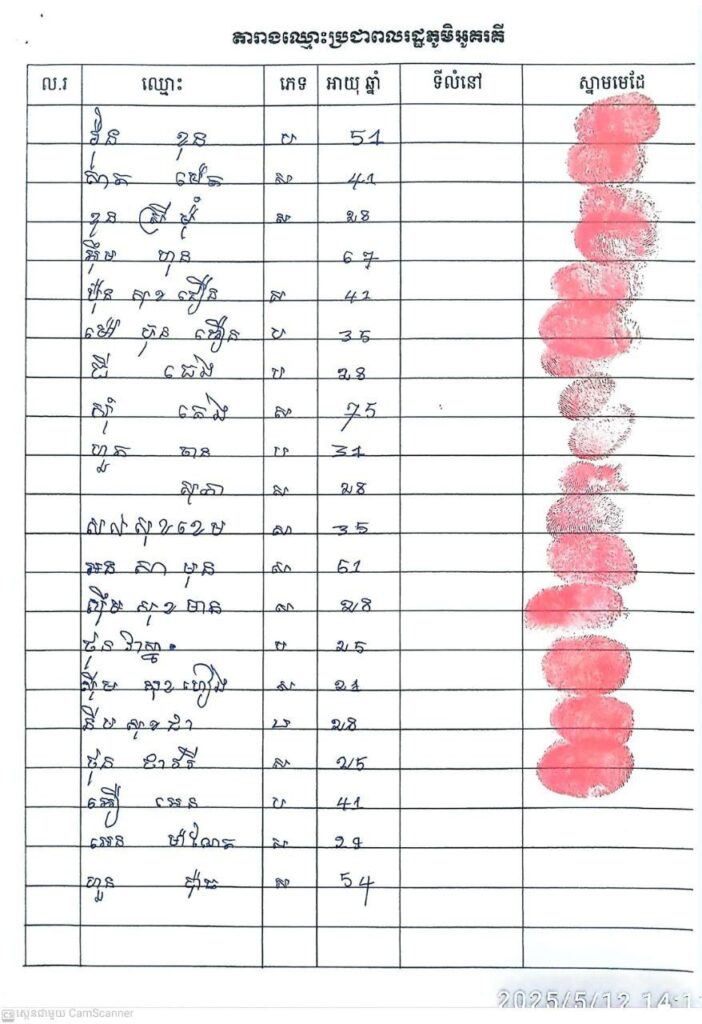 តារាងឈ្មោះប្រជាពលរដ្ឋភូមិអូគរគី
ល.រ ឈ្មោះ ភេទ អាយុ ឆ្នាំ ទីលំនៅ ស្នាមមេដៃ
វ៉ុន ខុន ប 51
ស 41
ខួន ស្រី ម៉ុំ ស 28
អ៊ឹម ហុន 67
ប៉ុន សុខ ជឿន ស 41
ម៉ៅ ប៊ុន ធឿន ប 35
ជី ប 28
ស៊ុំ ស 75
ហួត ចាន ប 31
សុភា ស 28
សល់ សុខខេម ស 35
អន សា មុន ស 61
ស៊ឹម សុខ មាន ស 28
ថុន វាស្នា ប 25
ស៊ឹម សុខ ហៀង ស 21
នឹម សុខ ជា ប 28
ថុន ជាវរី ស 25
អេន ប 41
អេន ម៉ាណែត ស
ហួន ស 54
2025/5/12 14:11
ស្កេនជាមួយ CamScanner